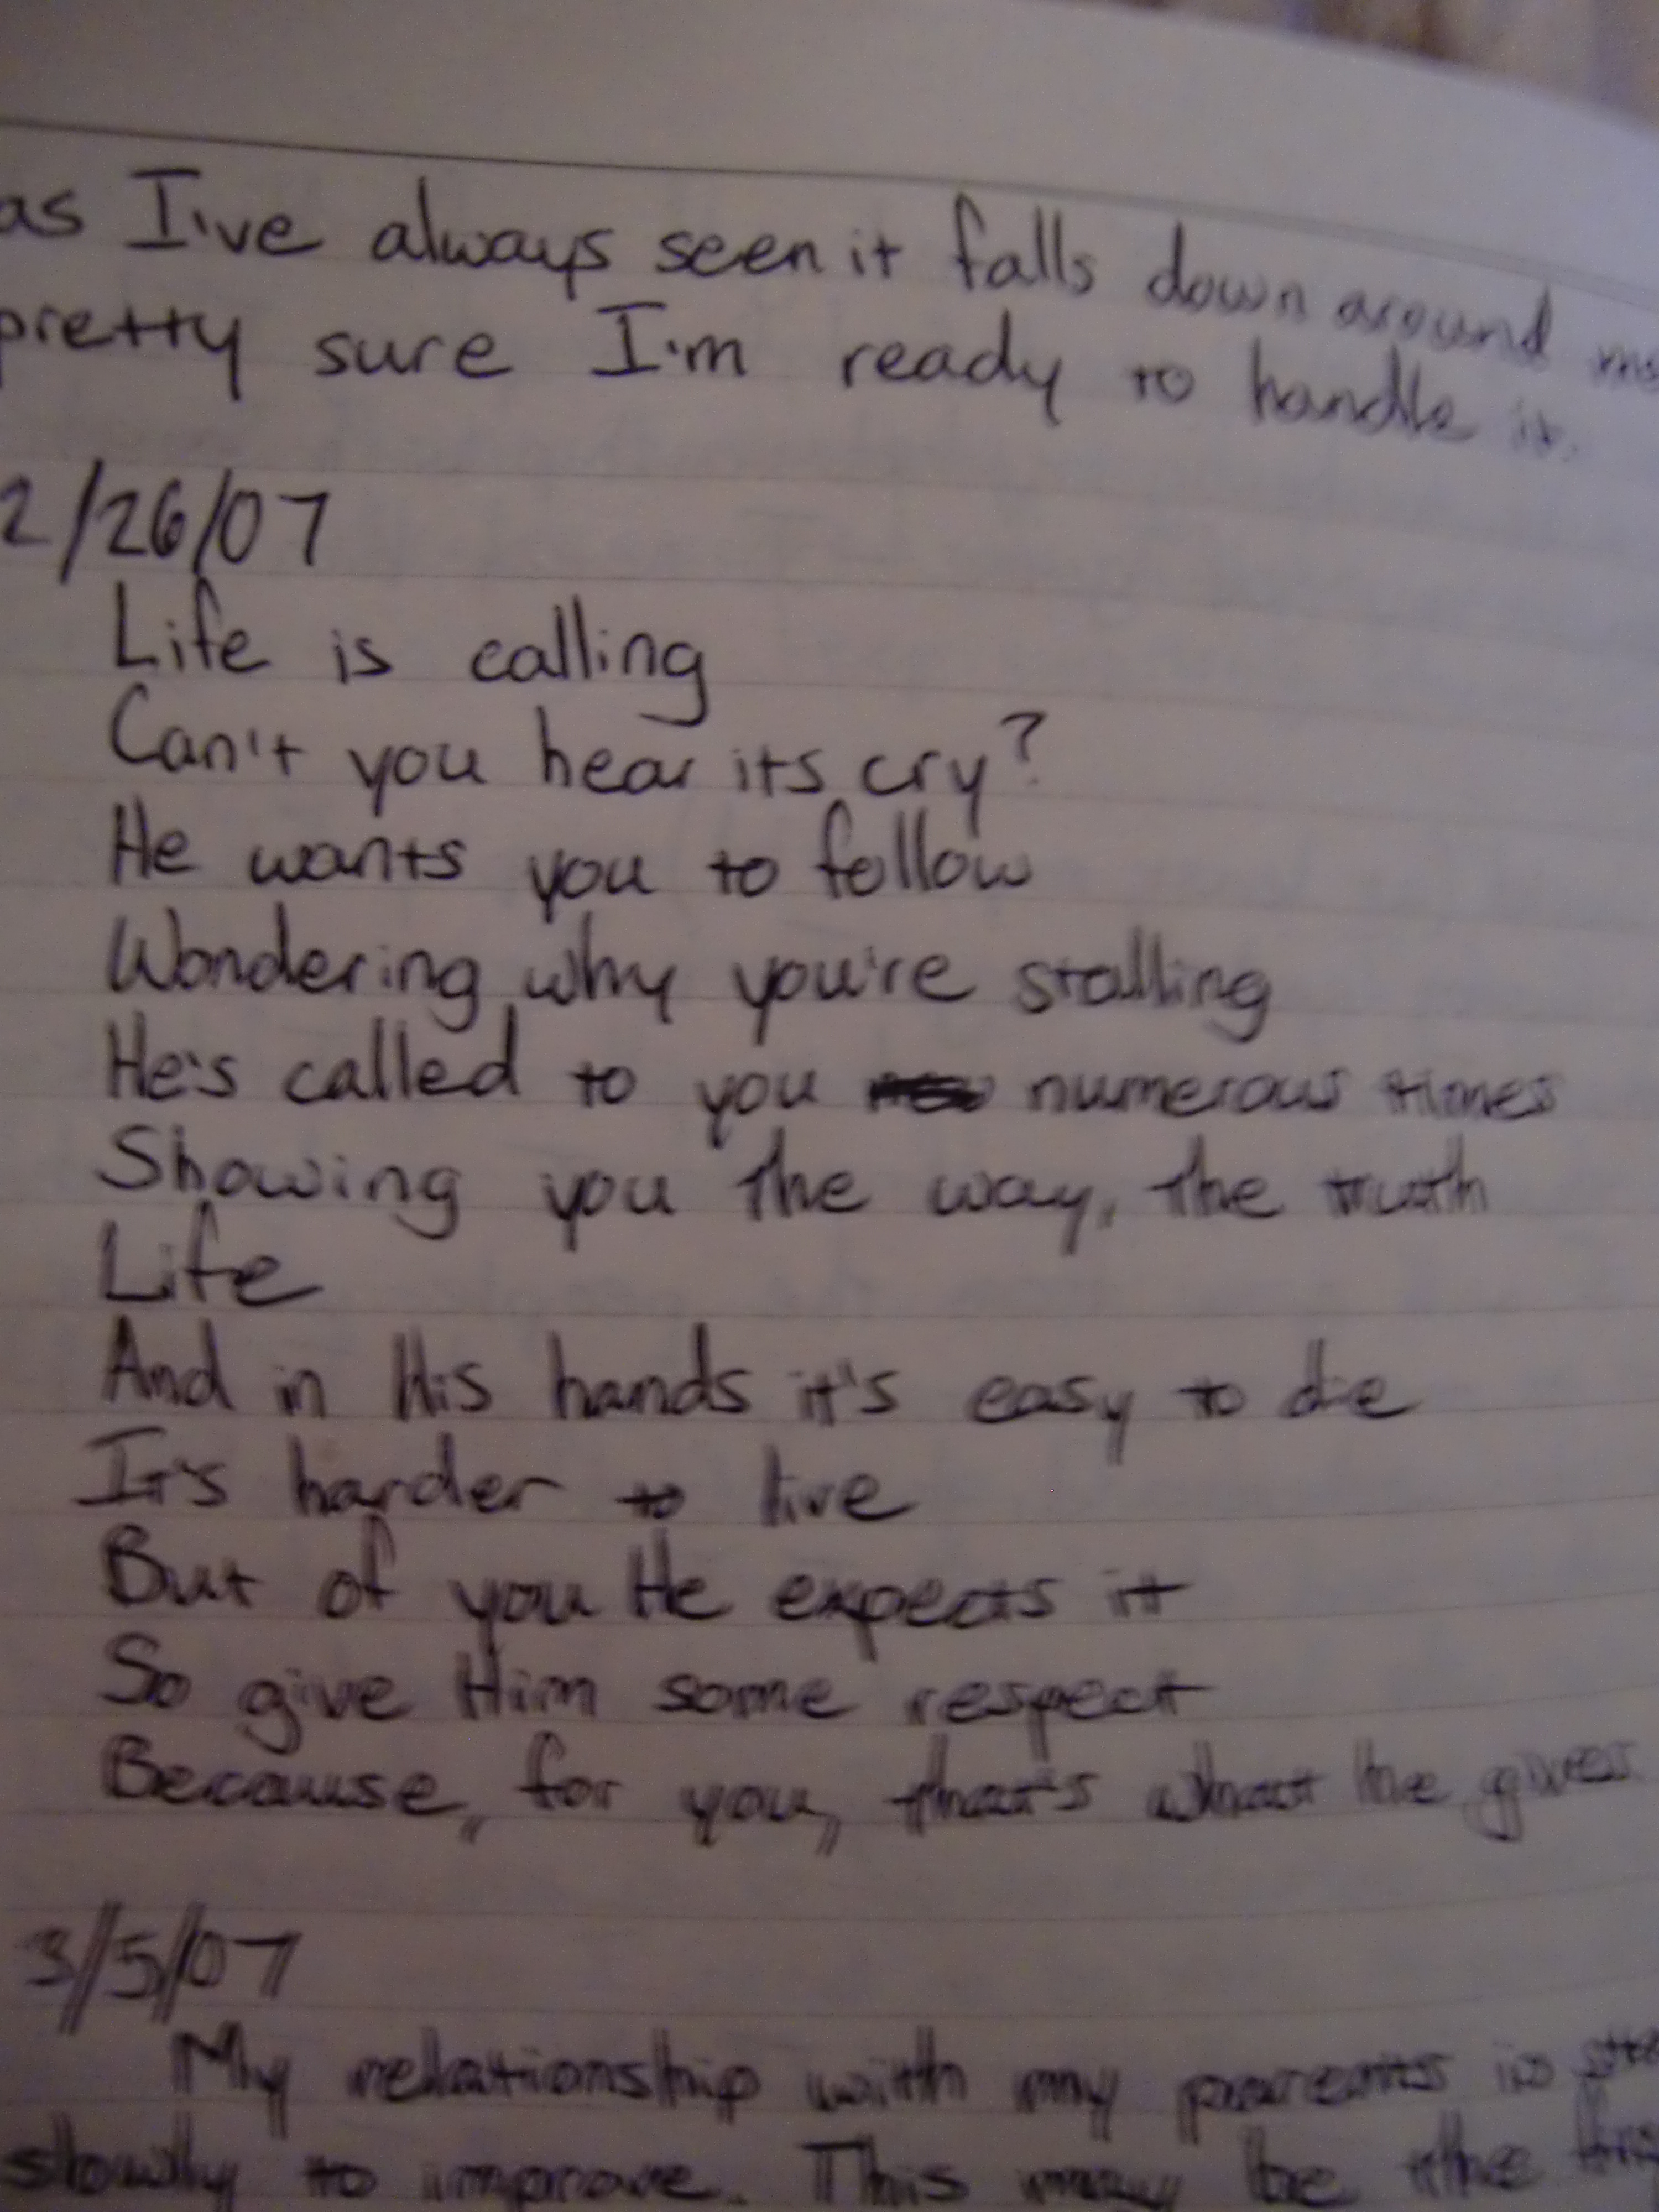 as I've always seen it falls down around
pretty sure I'm ready to handle it.
2/26/07
Life is calling
Can't you hear its cry?
He wants you to follow
Wondering why you're stalling
He's called to you numerous times
Showing you the way, the truth
Life
And in His hands it's easy to die
It's harder to live
But of you He expects it
So give Him some respect
Because, for you, that's what he gives
3/5/07
My relationship with my parents is
slowly to improve. This may be the